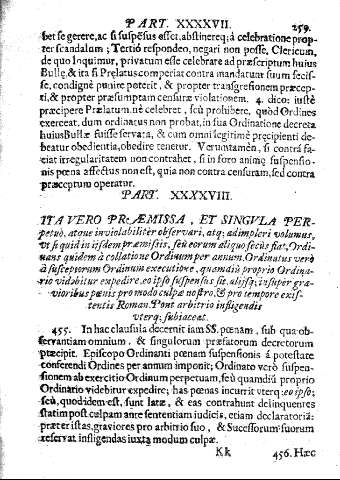 PART. XXXXVII. 259.
bet se gerere, ac si suspẽsus esset, abstinereq; à celebratione prop-
ter scandalum; Tertiò respondeo, negari non posse, Clericum,
de quo Inquimur, privatum esse celebrare ad præscriptum huius
Bullę, & ita si Pręlatus comperiat contra mandatum suum fecis-
se, condignè punire poterit, & propter transgresionem præcep-
ti, & propter præsumptam censuræ violationem. 4. dico: iustè
præcipere Prælatum nè celebret, seù prohibere, quòd Ordines
exerceat, dum ordinatus non probat, in sua Ordinatione decreta
huius Bullæ fuisse servata, & cum omni legitimè pręcipienti de-
beatur obedientia, obedire tenetur. Verumtamèn, si contrá fa-
ciat irregularitatem non contrahet, si in foro animę suspensio-
nis pœna affectus non est, quia non contra censuram, sed contra
præceptum operatur.
PART. XXXXVIII.
ITA VERO PRÆMISSA, ET SINGVLA PER-
petuò, atque inviolabilitèr observari, atq; adimpleri volumus,
ut si quid in iisdem præmissis, seù eorum aliquo secùs fiat, Ordi-
nans quidem à collatione Ordinum per annum. Ordinatus verò
à susceptorum Ordinum executione, quamdiù proprio Ordina-
rio videbitur expedire, eo ipso suspensus sit, alijsq; insupèr gra-
vioribus pœnis pro modulo culpæ nostro, & pro tempore exis-
tentis Roman. Pont. arbitrio infligendis
uterq; subiaceat.
455. In hac clausula decernit iam SS. pœnam, sub qua ob-
servantiam omnium, & singulorum præfatorum decretorum
præcipit. Episcopo Ordinanti pœnam suspensionis á potestate
conferendi Ordines per annum imponit; Ordinato verò suspen-
sionem ab exercitio Ordinum perpetuam, seù quamdiú proprio
Ordinario videbitur expedire; has pœnas incurrit vterq; eo ipso;
seù, quod idem est, sunt latæ, & eas contrahunt delinquentes
statim post culpam ante sententiam iudicis, etiam declaratoriã:
præter istas, graviores pro arbitrio suo, & Successorum suorum
reservat infligendas iuxtà modum culpæ.
Kk 456. Hæc